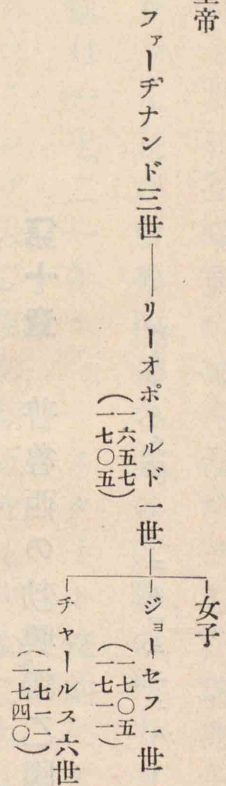 皇帝
ファーヂナンド三世
リーオポールド一世
(一六五七
一七〇五)
女子
ジョーセフ一世
(一七〇五
一七一一)
チャールス六世
(一七一一
一七四〇)